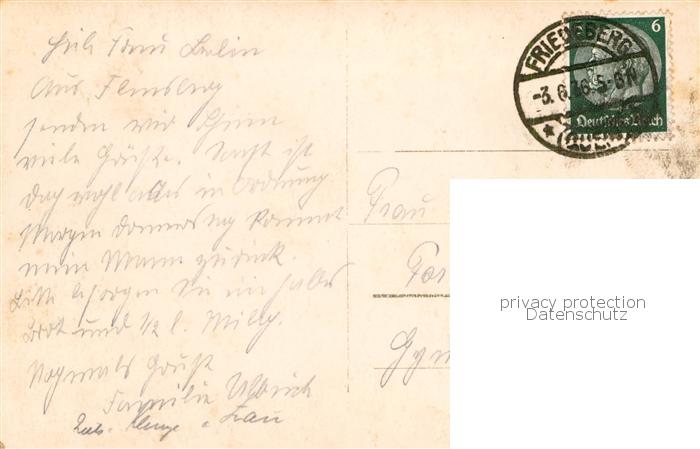 Aus Flinsberg
senden wir Ihnen
viele Grüße. Sonst ist
doch wohl alles in Ordnung
Morgen Donnerstag kommt
mein Mann zurück.
Bitte besorgen Sie ein halbes
Brot und 1/2 l. Milch.
Nochmals Gruß
Familie Ulbrich
Frau
6
FRIEDEBERG
-3.6.36.5-6N
Deutsches Reich
(QUEIS)
Frau
privacy protection
Datenschutz